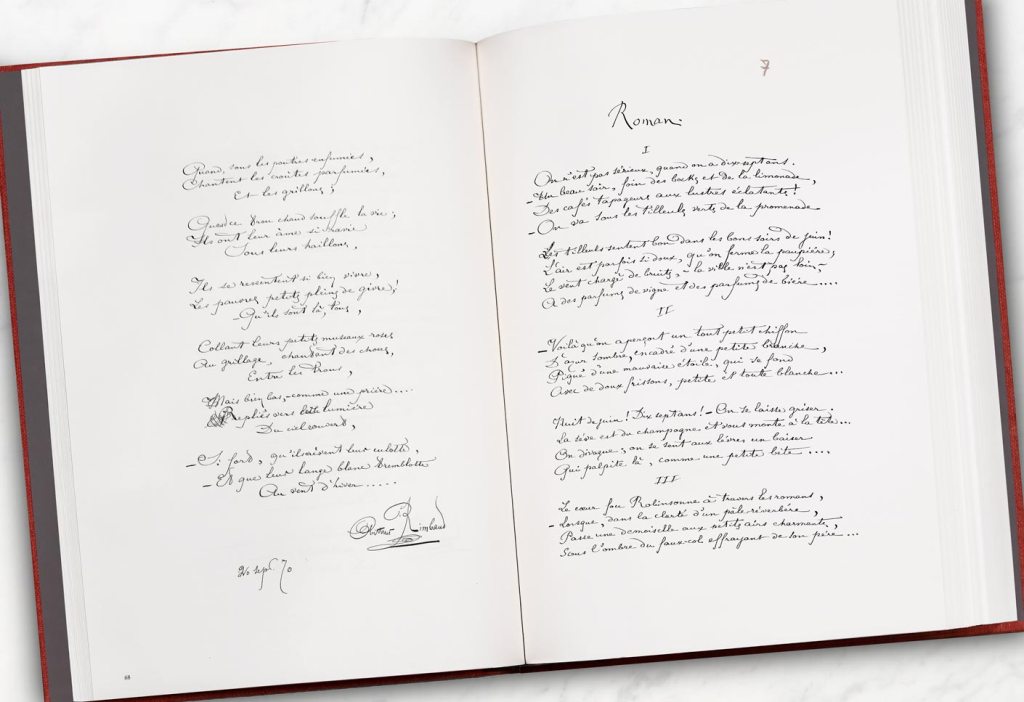 Quand, sous les poutres enfumées,
Chantent les croûtes parfumées,
Et les grillons ;
Quand ce trou chaud souffle la vie ;
Ils ont leur âme si ravie
Sous leurs haillons,
Ils se ressentent si bien vivre,
Les pauvres petits pleins de givre,
- Qu'ils sont là, tous,
Collant leurs petits museaux roses
Au grillage, chantant des choses,
Entre les trous,
Mais bien bas, - comme une prière....
Repliés vers cette lumière
Du ciel rouvert,
- Si fort, qu'ils crèvent leur culotte,
- Et que leur lange blanc tremblotte
Au vent d'hiver.....
Arthur Rimbaud
20 sept. 70
88
7
Roman.
I
On n'est pas sérieux, quand on a dix sept ans.
- Un beau soir, foin des bocks et de la limonade,
Des cafés tapageurs aux lustres éclatants !
- On va sous les tilleuls verts de la promenade
Les tilleuls sentent bon dans les bons soirs de juin !
L'air est parfois si doux, qu'on ferme la paupière ;
Le vent chargé de bruits, - la ville n'est pas loin, -
A des parfums de vigne et des parfums de bière....
II
- Voilà qu'on aperçoit un tout petit chiffon
D'azur sombre, encadré d'une petite branche,
Piqué d'une mauvaise étoile, qui se fond
Avec de doux frissons, petite et toute blanche...
Nuit de juin ! Dix sept ans ! - On se laisse griser.
La sève est du champagne et vous monte à la tête...
On divague ; on se sent aux lèvres un baiser
Qui palpite là, comme une petite bête....
III
Le cœur fou Robinsonne à travers les romans,
- Lorsque, dans la clarté d'un pâle réverbère,
Passe une demoiselle aux petits airs charmants,
Sous l'ombre du faux-col effrayant de son père...